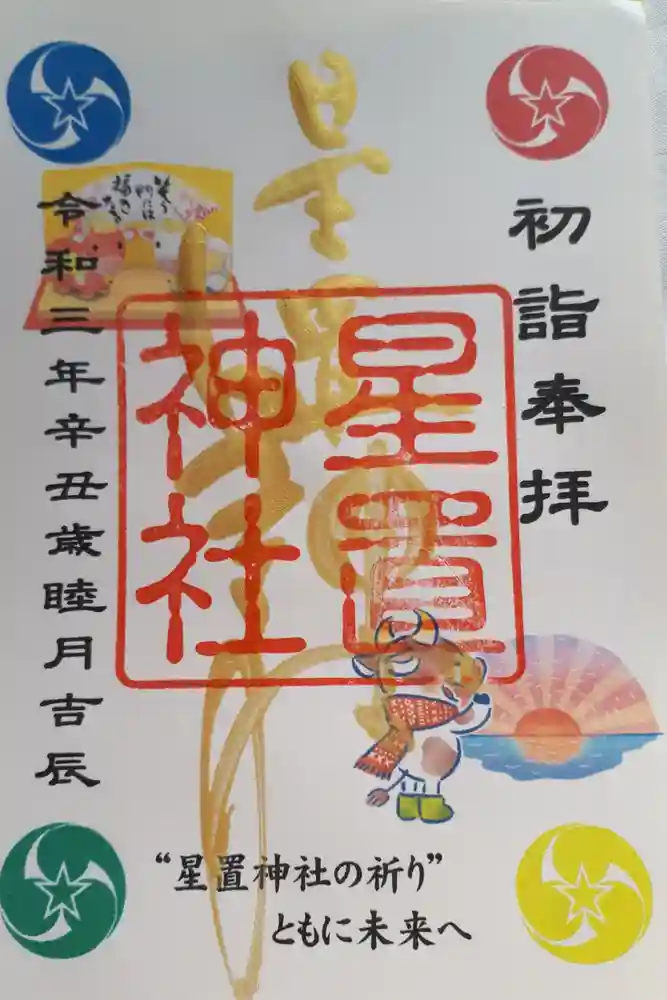 初詣奉拝
星置神社
星置
神社
笑う
門には
福きたる
令和三年辛丑歳睦月吉辰
“星置神社の祈り”
ともに未来へ